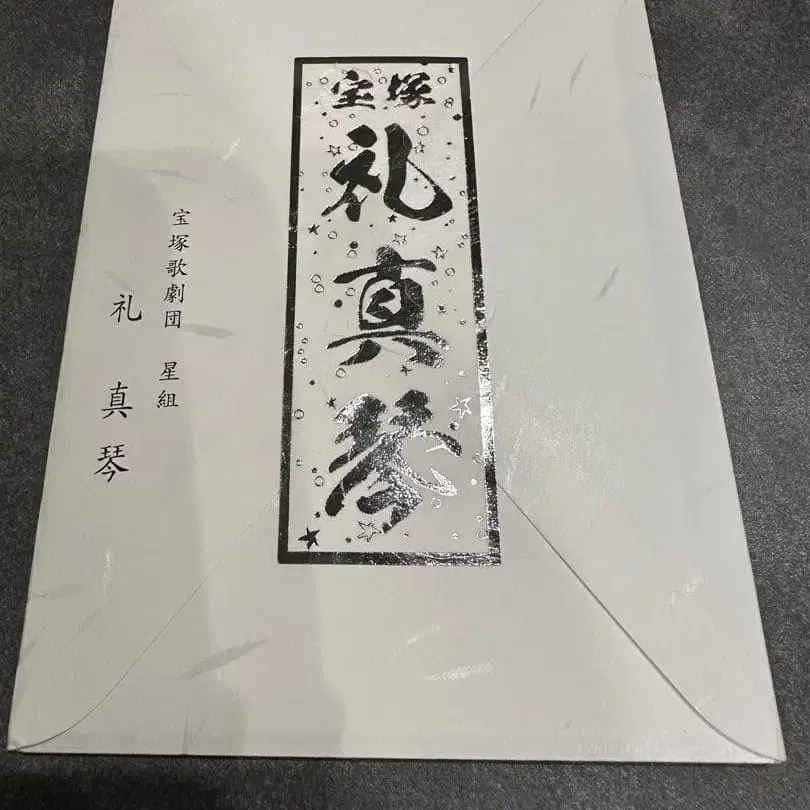 宝塚
礼真琴
宝塚歌劇団 星組
礼真琴